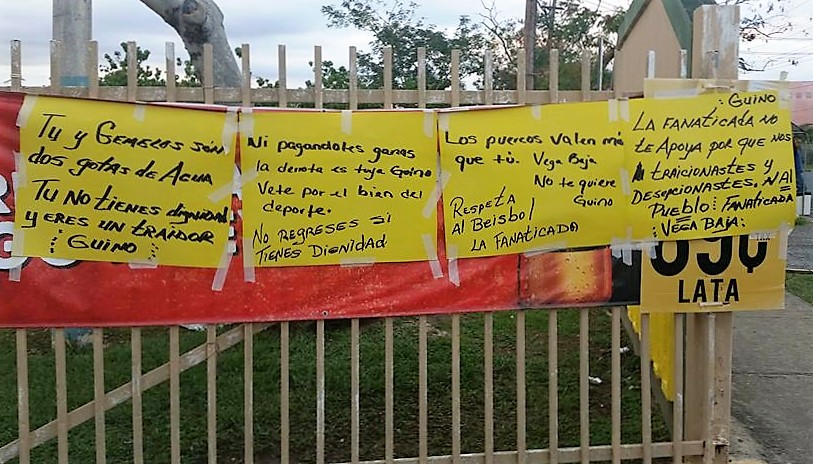 Tu y Gemelos son
dos gotas de Agua
Tu No tienes dignidad
y eres un traidor
: Guino :
Ni pagandoles ganas
la derrota es tuya Guino
Vete por el bien del
deporte.
No regreses si
tienes Dignidad
Los puercos valen má
que tú. Vega Baja
No te quiere
Guino
Respeta
Al Beisbol
LA FANATICADA
: Guino
LA FANATICADA NO
te Apoya por que nos
traicionastes y
Desepcionastes. NAI
Pueblo: FANATICADA
: VEGA BAJA:
89¢
LATA